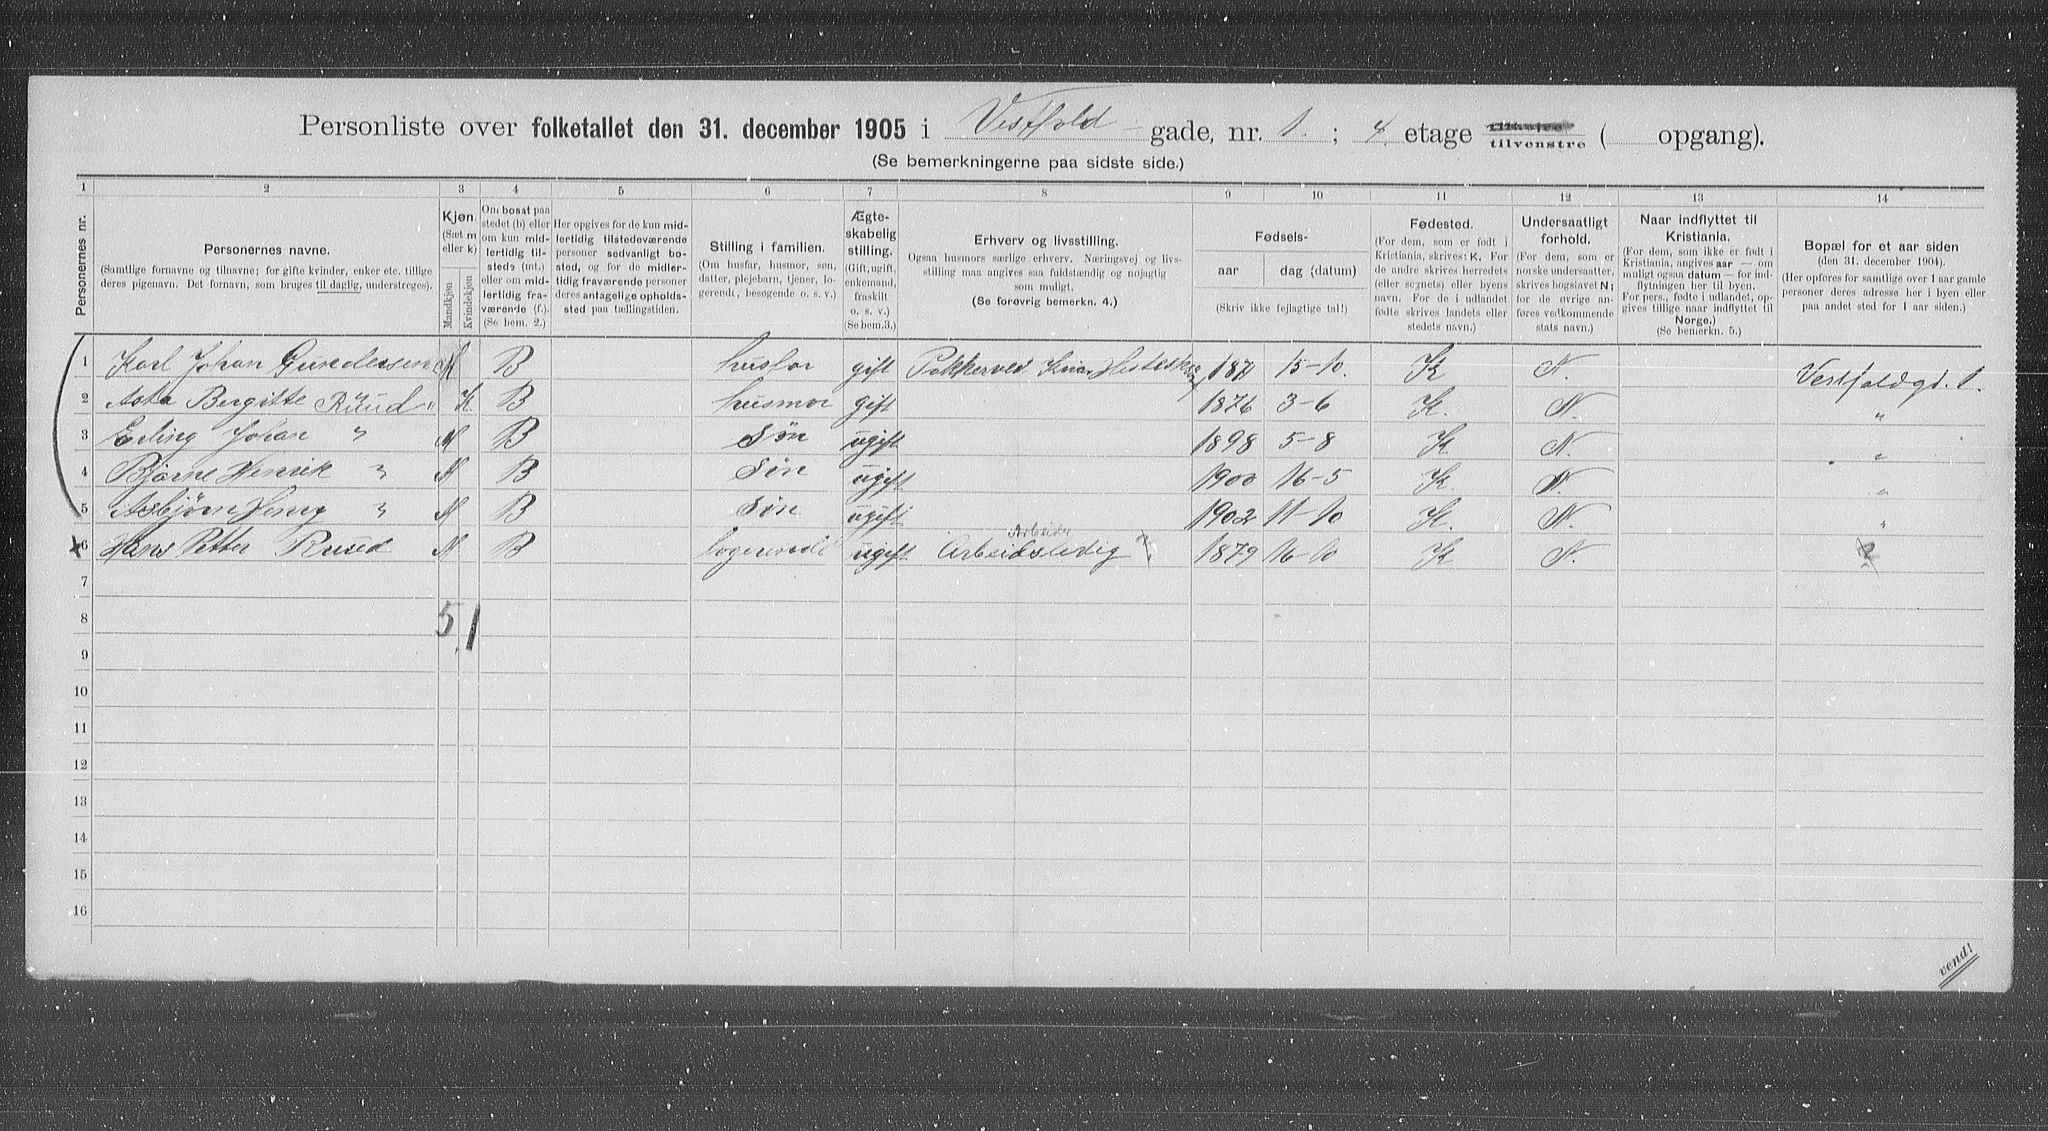 Personliste over folketallet den 31. december 1905 i Vestfold gade, nr. 1. ; 4. etage tilvenstre ( opgang).
(Se bemerkningerne paa sidste side.)
1 2 3 4 5 6 7 8 9 10 11 12 13 14
Personernes nr.
Personernes navne.
(Samtlige fornavne og tilnavne; for gifte kvinder, enker etc. tillige
deres pigenavn. Det fornavn, som bruges til daglig, understreges).
Kjøn.
(Sæt m
eller k)
Mandkjøn
Kvindekjøn
Om bosat paa
stedet (b) eller
om kun mid-
lertidig til-
stede (mt.)
eller om mid-
lertidig fra-
værende (f.).
(Se bem. 2.)
Her opgives for de kun mid-
lertidig tilstedeværende
personer sedvanligt bo-
sted, og for de midler-
tidig fraværende personer
deres antagelige opholds-
sted paa tællingstiden.
Stilling i familien.
(Om husfar, husmor, søn,
datter, plejebarn, tjener, lo-
gerende, besøgende o. s. v.)
Ægte-
skabelig
stilling.
(Gift, ugift,
enkemand,
fraskilt
o. s. v.)
(Se bem. 3.)
Erhverv og livsstilling.
Ogsaa husmors særlige erhverv. Næringsvej og livs-
stilling maa angives saa fuldstændig og nøjagtig
som muligt.
(Se forøvrig bemerkn. 4.)
Fødsels-
aar dag (datum)
(Skriv ikke fejlagtige tal!)
Fødested.
(For dem, som er født i
Kristiania, skrives: K. For
de andre skrives herredets
(eller sognets) eller byens
navn. For de i udlandet
fødte skrives landets eller
stedets navn.)
Undersaatligt
forhold.
(For dem, som er
norske undersaatter,
skrives bogstavet N;
for de øvrige an-
føres vedkommende
stats navn.)
Naar indflyttet til
Kristiania.
(For dem, som ikke er født i
Kristiania, angives aar — om
muligt ogsaa datum — for ind-
flytningen her til byen.
For pers., fødte i udlandet, op-
gives tillige naar indflyttet til
Norge.)
(Se bemerkn. 5.)
Bopæl for et aar siden
(den 31. december 1904).
(Her opføres for samtlige over 1 aar gamle
personer deres adresse her i byen eller
paa andet sted for 1 aar siden.)
1 Karl Johan Gundersen M B husfar gift 1871 15-10. K N. Vestfoldgd. 1.
2 Asta Bergitte Ruud K. B husmor gift 1876 3-6 K. N. "
3 Erling Johan " M B Søn ugift 1898 5-8 K N "
4 Bjarne Henrik " M B Søn ugift 1900 16-5 K. N. "
5 Asbjørn Henry " M B Søn ugift 1902 11-10 K. N. "
Arbeider
6 Hans Petter Ruud M B logerende ugift Arbeidsledig ? 1879 16-10 K N. ?
7
8 5 1
9
10
11
12
13
14
15
16
vend!